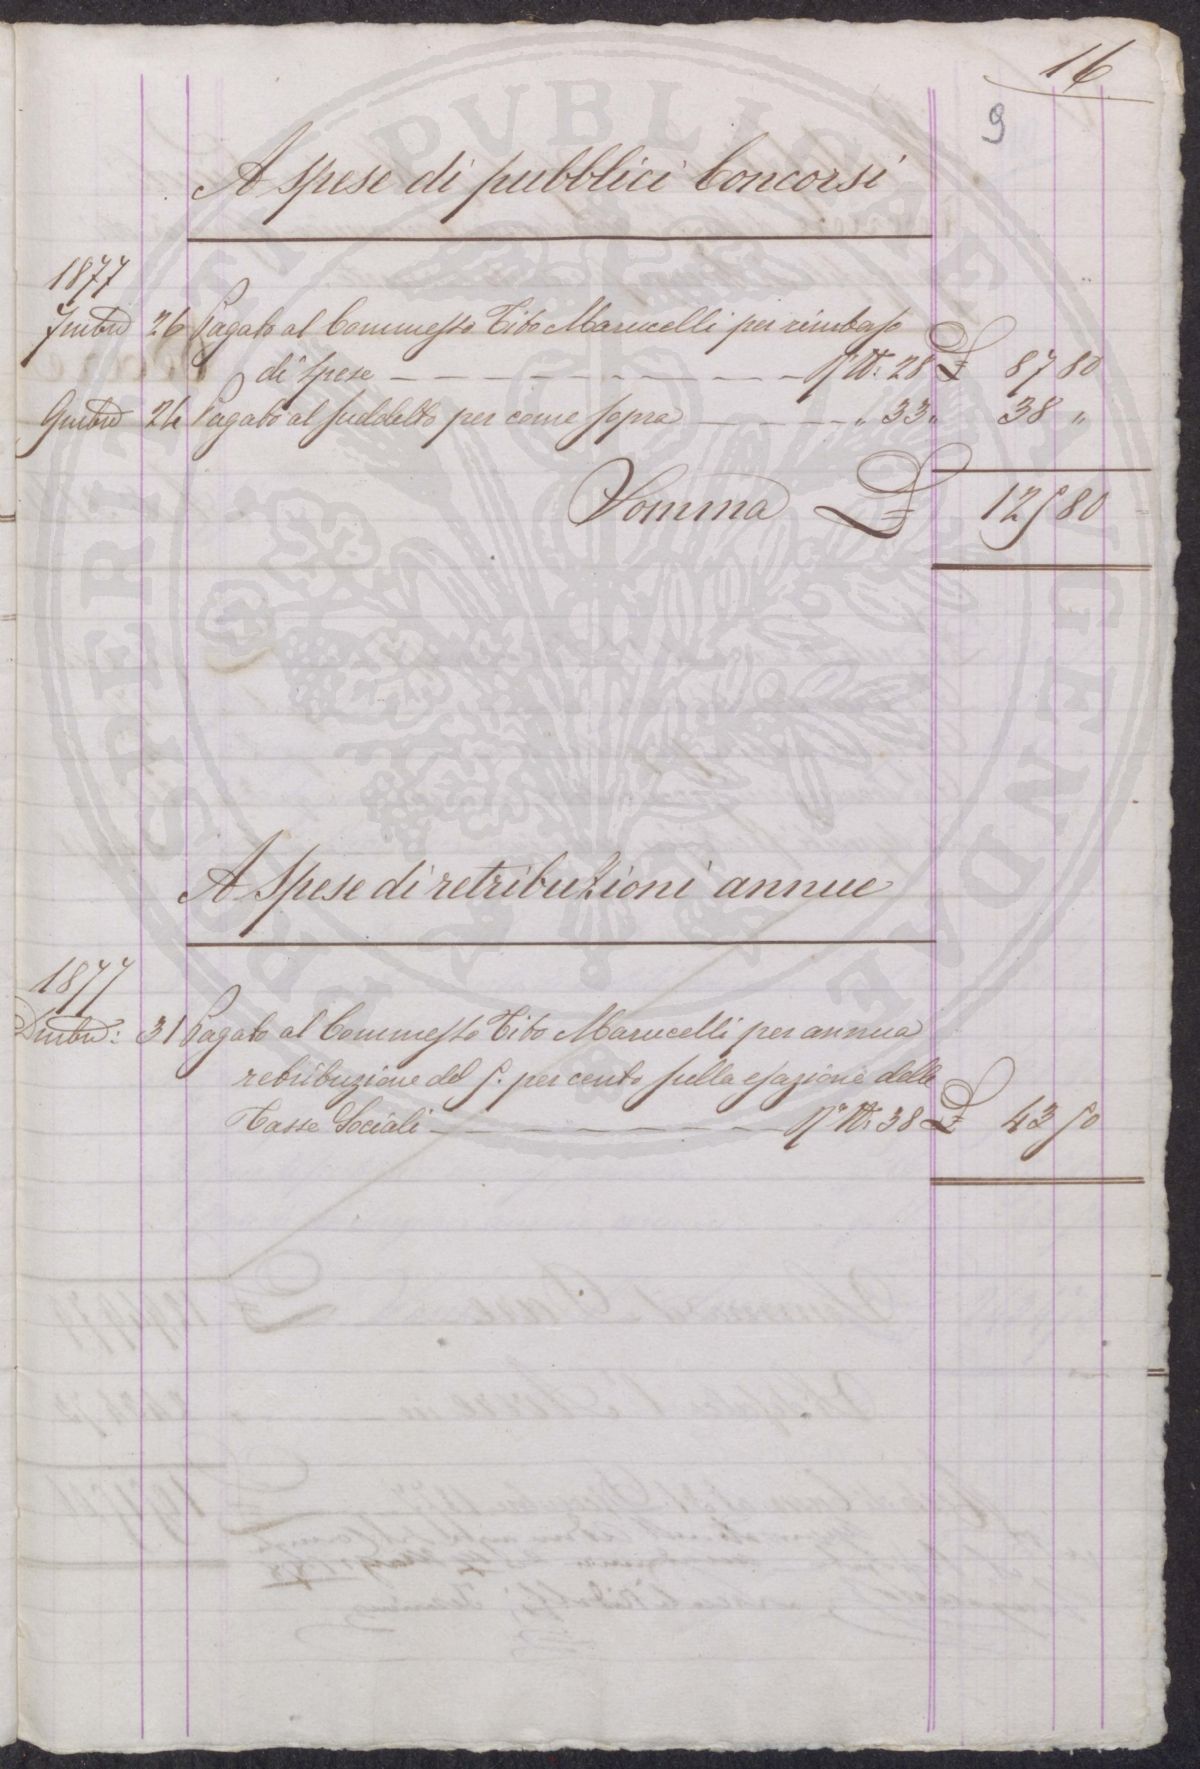 16
9
A spese di pubblici Concorsi
1877
7mbre 26 Pagato al Commesso Tito Marucelli per rimborso
di spese — — — — — — — — — — N° 28 £ 87 80
9mbre 24 Pagato al suddetto per come sopra — — — — " 33 " 38 "
Somma £ 125 80
A spese di retribuzioni annue
1877
Dmbre: 31 Pagato al Commesso Tito Marucelli per annua
retribuzione del 5. per cento sulla esazione delle
Tasse Sociali — — — — — — — — — — 38 £ 43 50
PVBLICAE